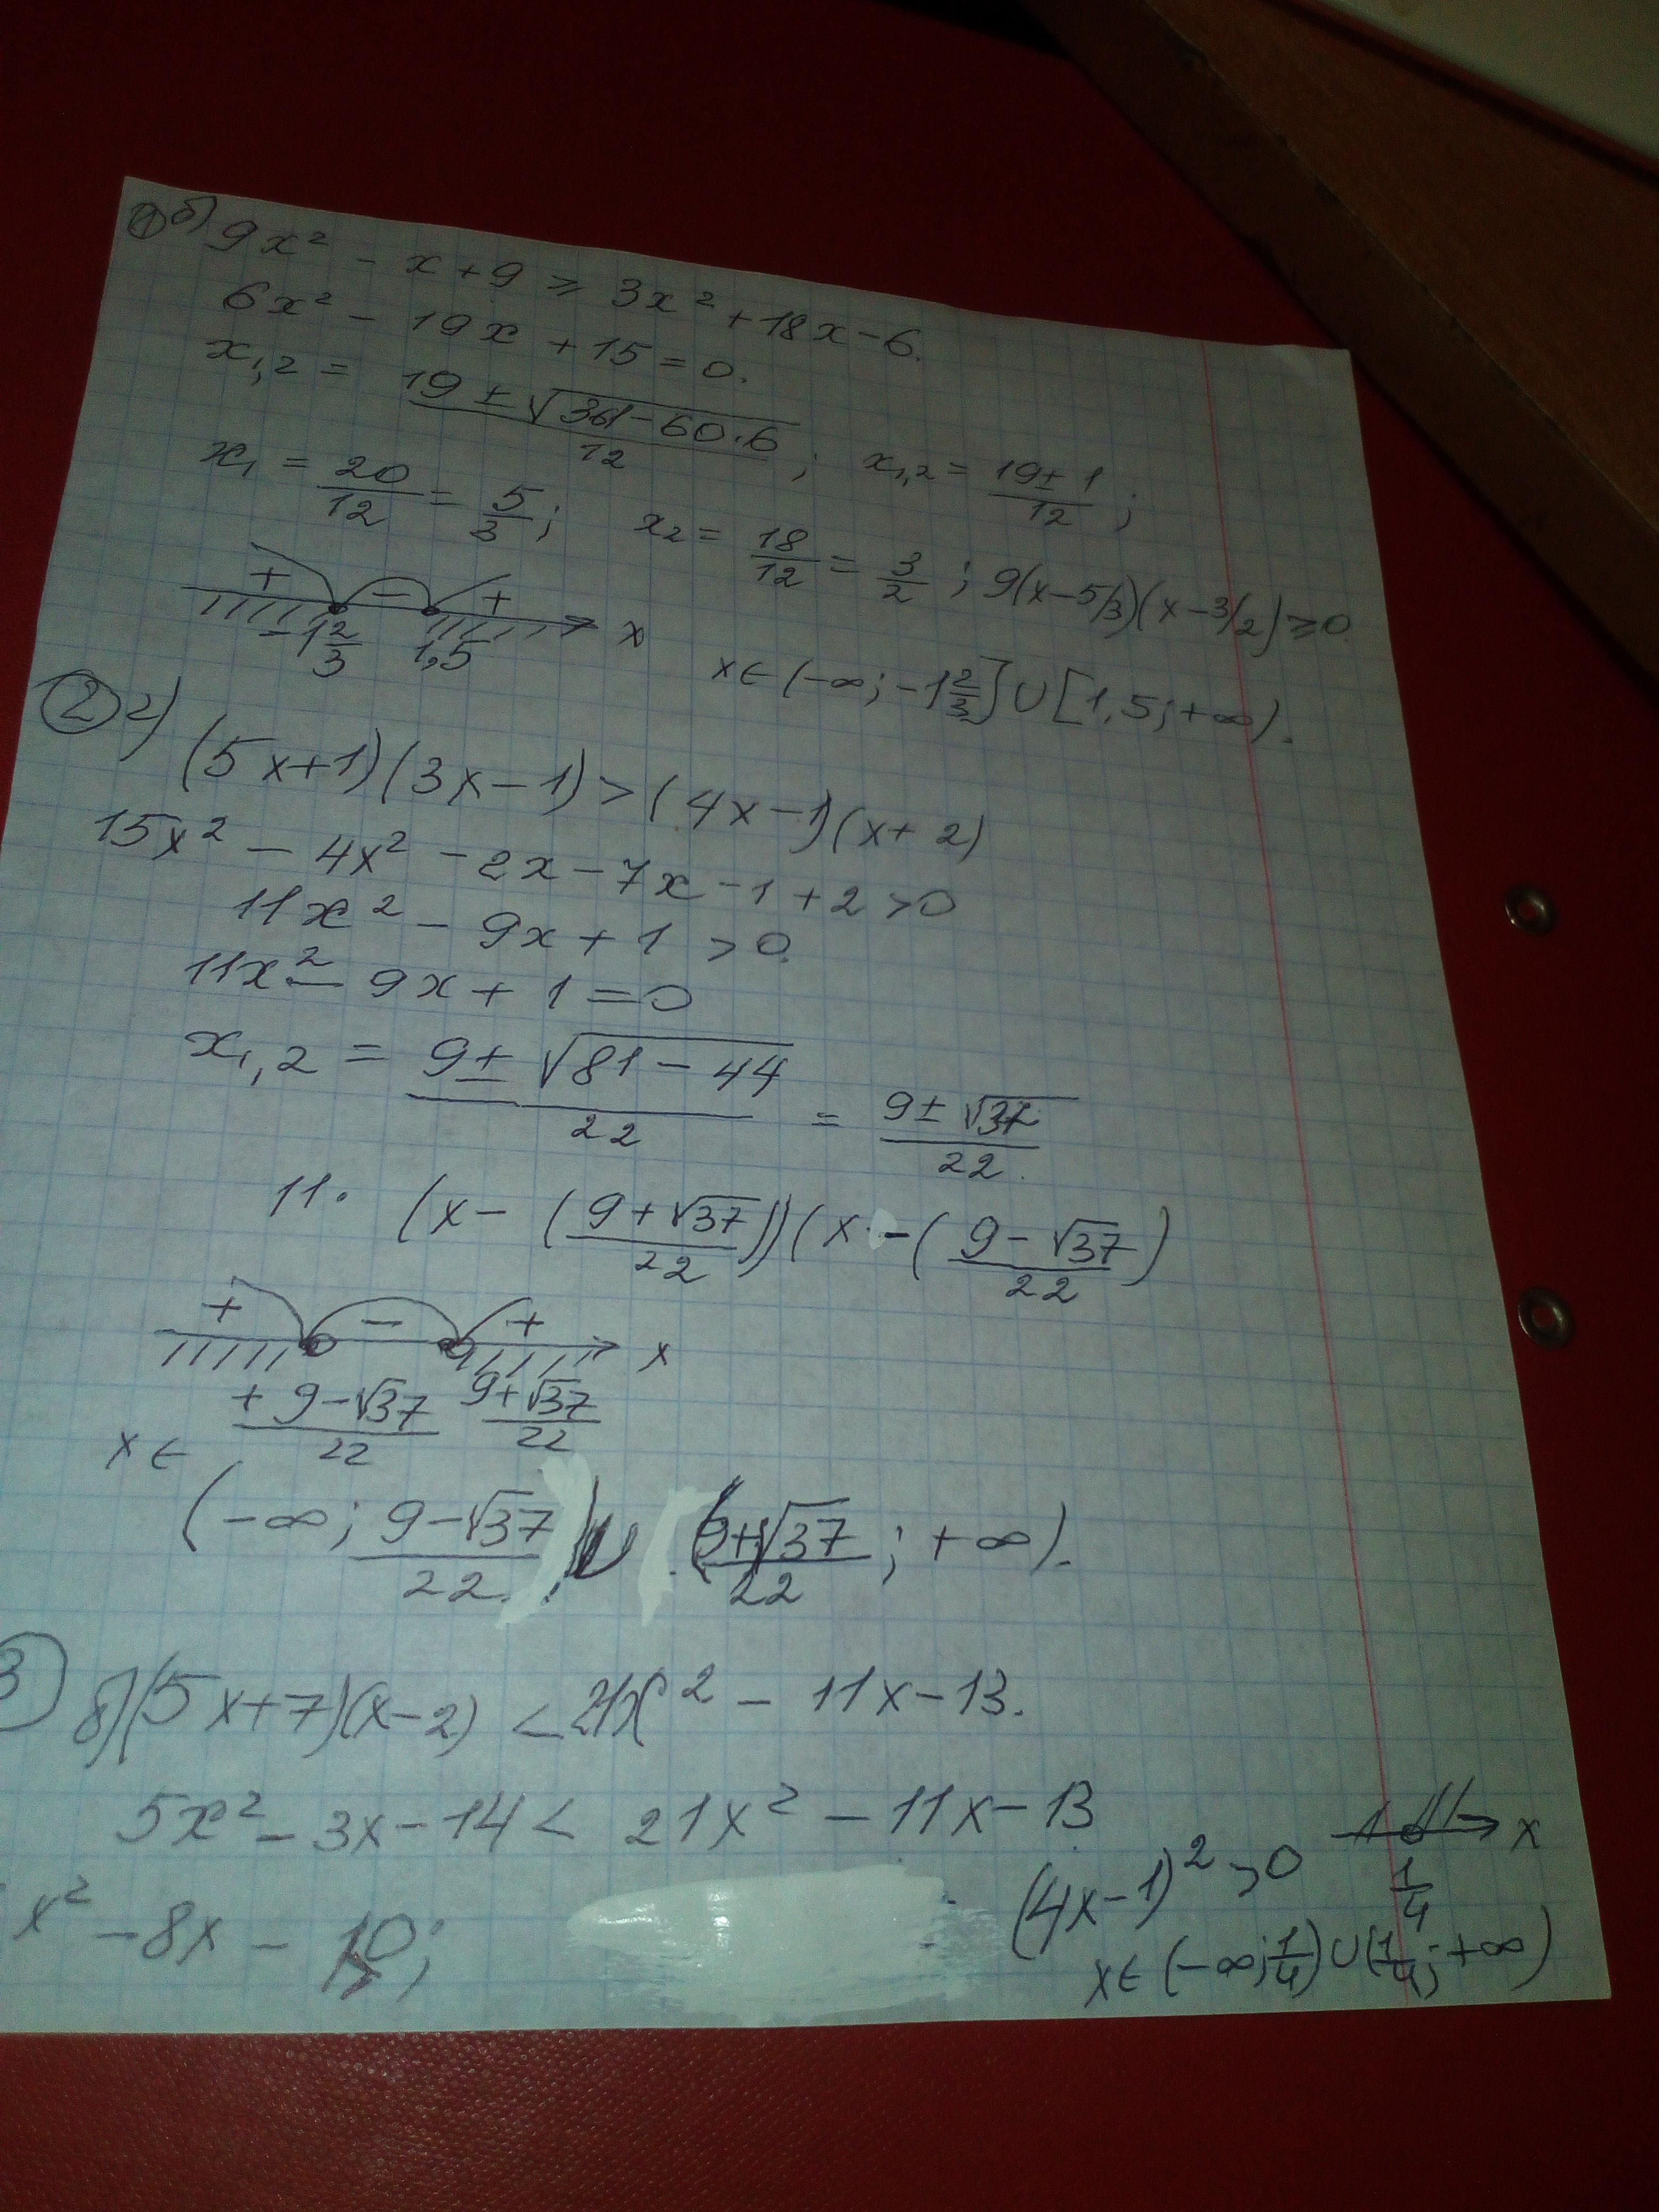 ① б) 9x² - x + 9 ≥ 3x² + 18x - 6.
6x² - 19x + 15 = 0.
x₁,₂ = (19 ± √(361 - 60·6))/12 ; x₁,₂ = (19 ± 1)/12 ;
x₁ = 20/12 = 5/3 ; x₂ = 18/12 = 3/2 ; 9(x - 5/3)(x - 3/2) ≥ 0
+ - + x
-1 2/3 1,5
x ∈ (-∞; -1 2/3] ∪ [1,5; +∞).
② г) (5x+1)(3x-1) > (4x-1)(x+2)
15x² - 4x² - 2x - 7x - 1 + 2 > 0
11x² - 9x + 1 > 0.
11x² - 9x + 1 = 0
x₁,₂ = (9 ± √(81 - 44))/22 = (9 ± √37)/22.
11· (x - ((9 + √37)/22))(x - ((9 - √37)/22)
+ - + x
+ (9 - √37)/22 (9 + √37)/22
x ∈
(-∞; (9 - √37)/22) ∪ ((9 + √37)/22; +∞).
3) б) (5x+7)(x-2) < 21x² - 11x - 13.
5x² - 3x - 14 < 21x² - 11x - 13
x
x² - 8x - (4x-1)² > 0 1/4
x ∈ (-∞; 1/4) ∪ (1/4; +∞)